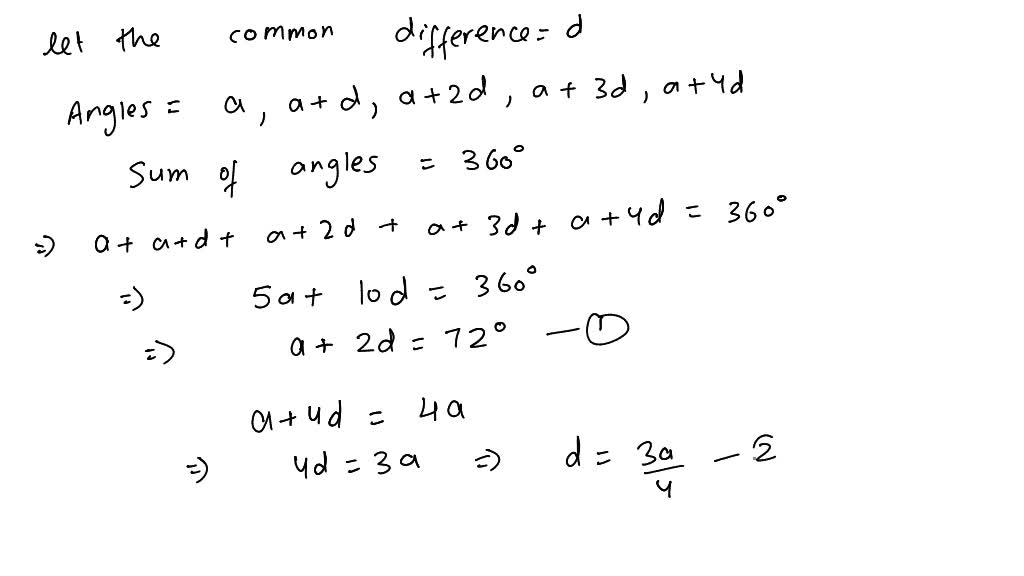 let the common difference = d
Angles = a, a+d, a+2d, a+3d, a+4d
Sum of angles = 360°
=> a+a+d+a+2d+a+3d+a+4d = 360°
=> 5a+10d = 360°
=> a+2d = 72° —①
a+4d = 4a
=> 4d = 3a => d = 3a/4 —2